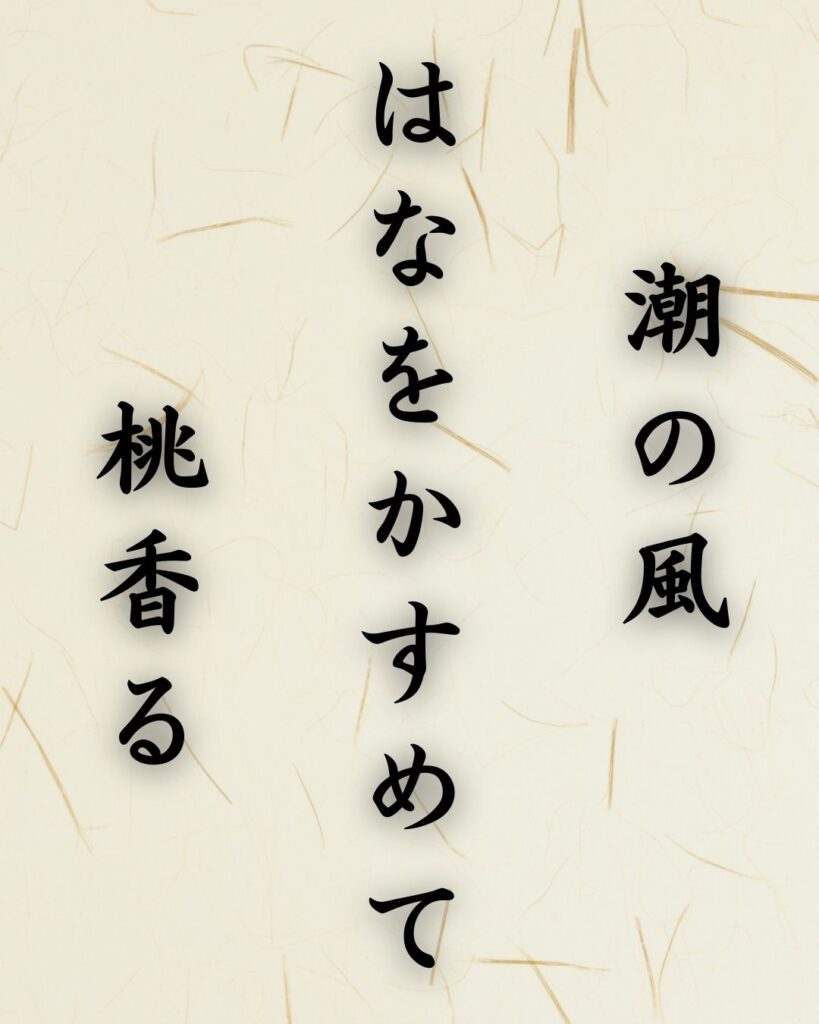 潮の風
はなをかすめて
桃香る